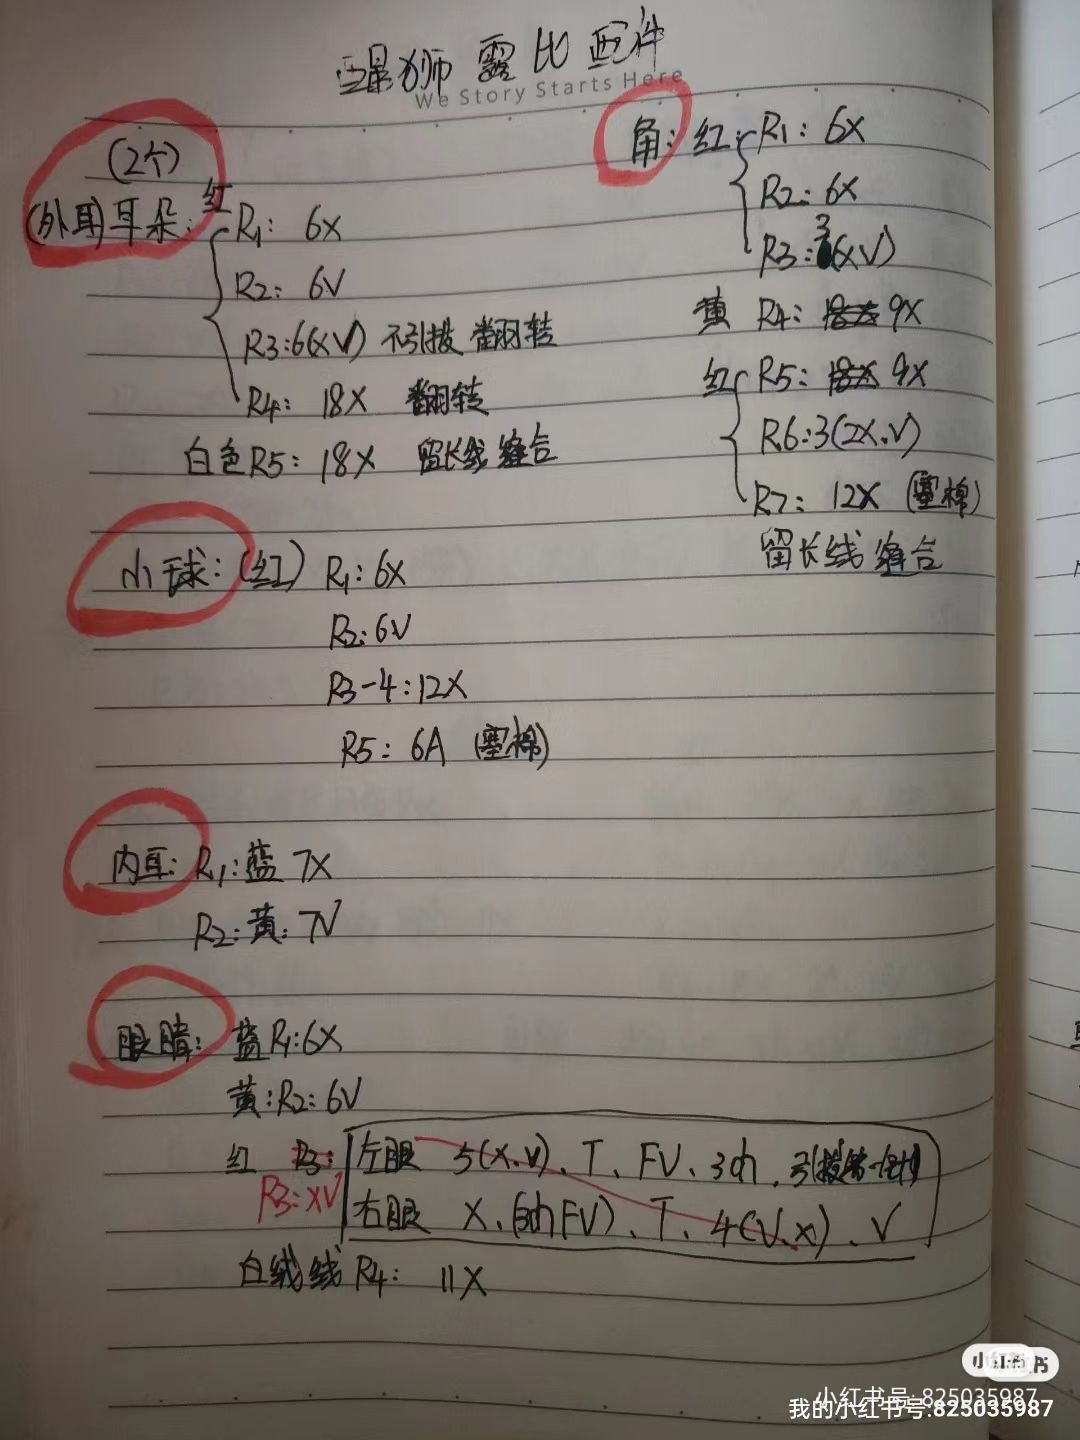 醒狮露比配件
We Story Starts Here
(2个)
(外耳)耳朵:红 R1: 6X
R2: 6V
R3:6(XV) 不引拔 翻转
R4: 18X 翻转
白色R5: 18X 留长线缝合
角:红:R1: 6X
R2: 6X
R3:3(XV)
黄 R4: 9X
红 R5: 9X
R6:3(2X.V)
R7: 12X (塞棉)
留长线缝合
小球:(红) R1:6X
R2:6V
R3-4:12X
R5: 6A (塞棉)
内耳: R1:蓝 7X
R2:黄: 7V
眼睛: 蓝R1:6X
黄:R2: 6V
红 R3: 左眼 5(X.V)、T、FV、3ch.引拔第一针
R3:XV 右眼 X、(3ch FV)、T、4(V.X)、V
白绒线R4: 11X
小红书
小红书号:825035987
我的小红书号:825035987